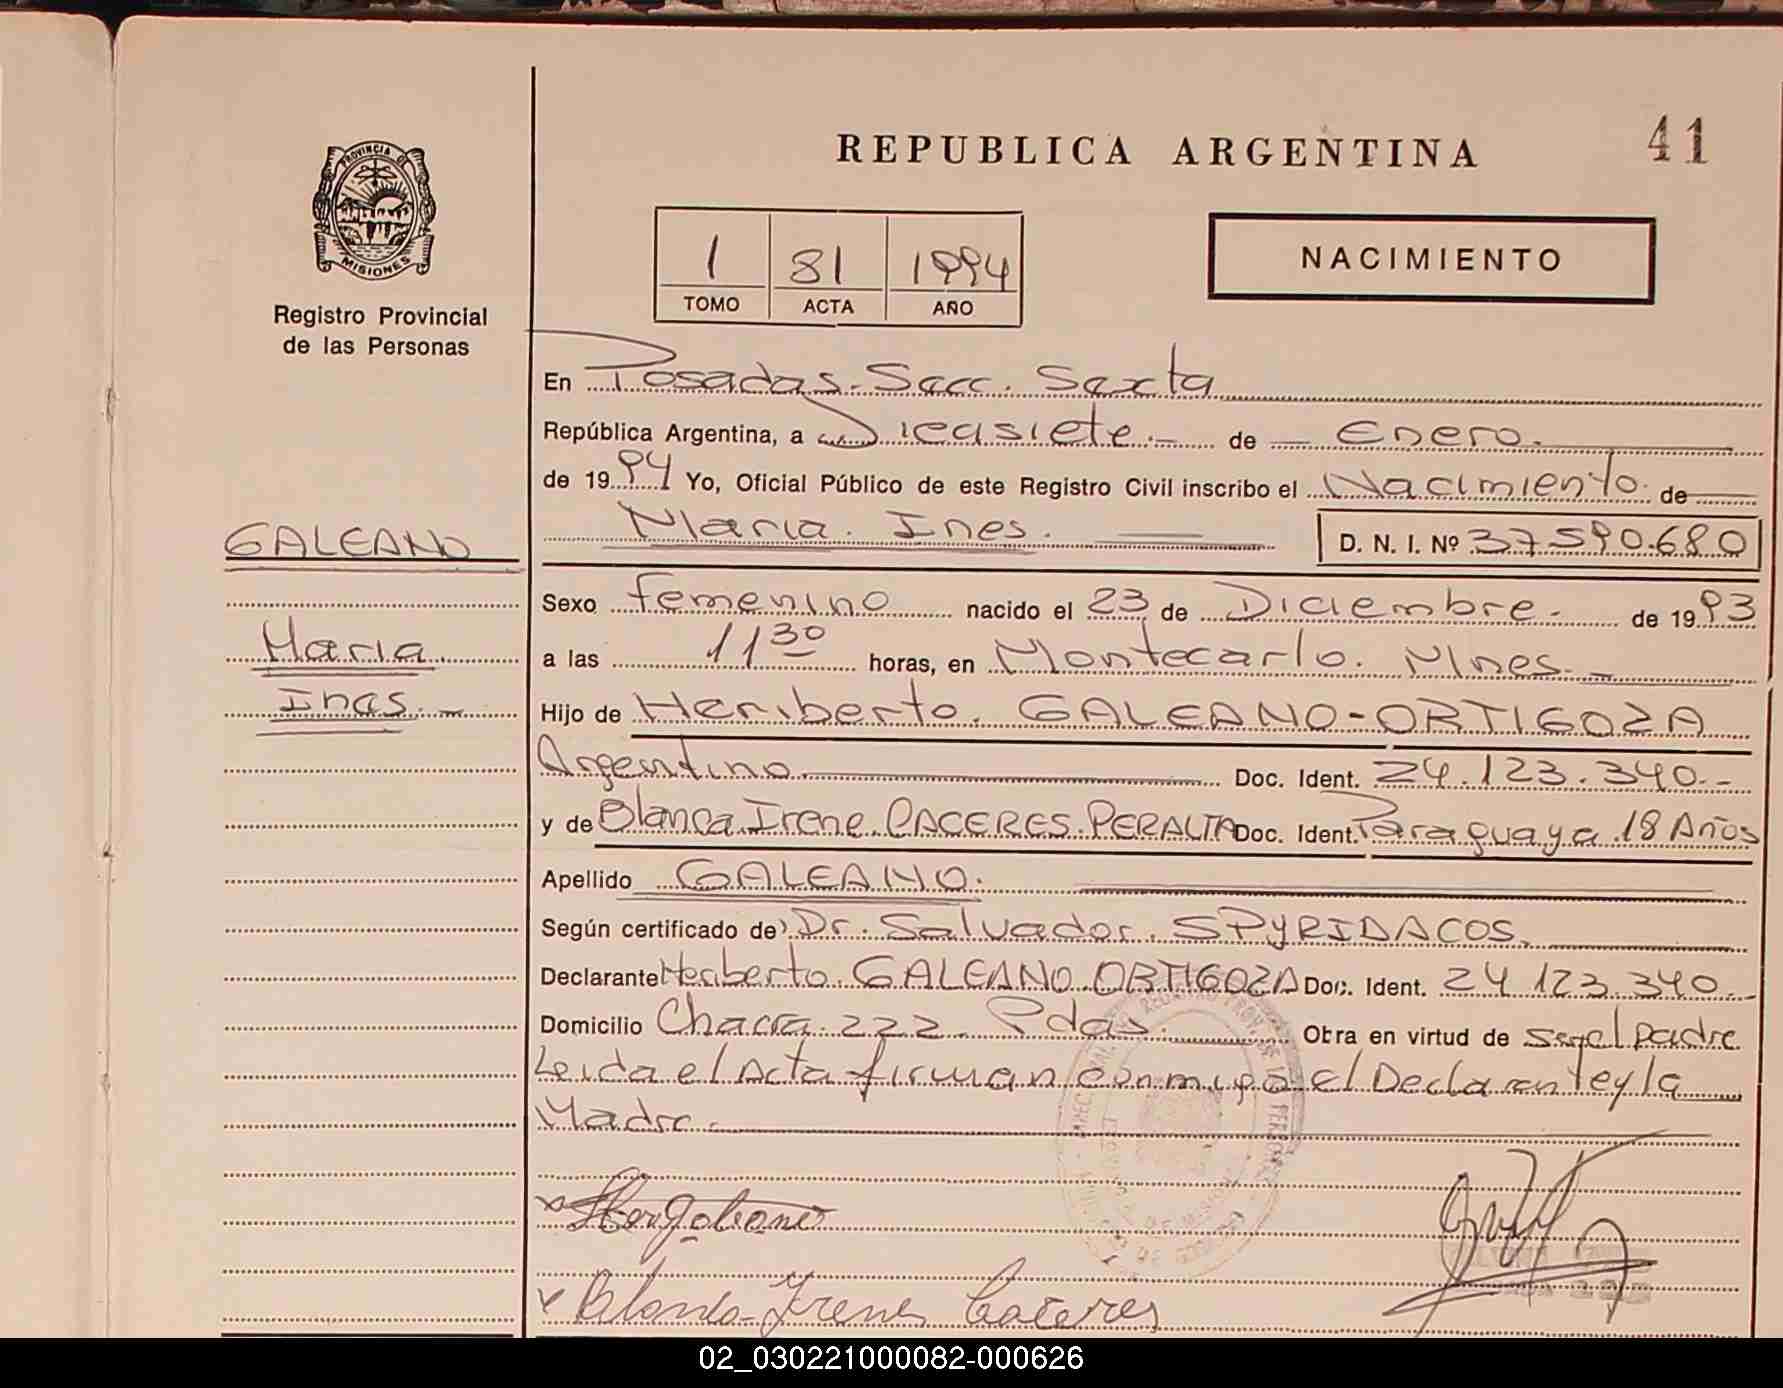 REPUBLICA ARGENTINA
41
PROVINCIA DE
MISIONES
Registro Provincial
de las Personas
1 81 1994
TOMO ACTA AÑO
NACIMIENTO
En Posadas. Secc. Sexta
República Argentina, a Diecisiete. de Enero.
de 1994 Yo, Oficial Público de este Registro Civil inscribo el Nacimiento de
Maria. Ines. D. N. I. Nº 37590.680
GALEANO
Maria
Ines.
Sexo femenino nacido el 23 de Diciembre. de 1993
a las 11 30 horas, en Montecarlo. Mnes.
Hijo de Heriberto. GALEANO-ORTIGOZA
Argentino Doc. Ident. 24.123.340.-
y de Blanca Irene CACERES PERALTA Doc. Ident. Paraguaya 18 Años
Apellido GALEANO.
Según certificado de Dr. Salvador. SPYRIDACOS.
Declarante Heriberto GALEANO ORTIGOZA Doc. Ident. 24 123.340.
Domicilio Chacra 222. Pdas. Obra en virtud de ser el padre
Leida el Acta firman conmigo el Declarante y la
Madre.
Blanca Irene Caceres
02_030221000082-000626